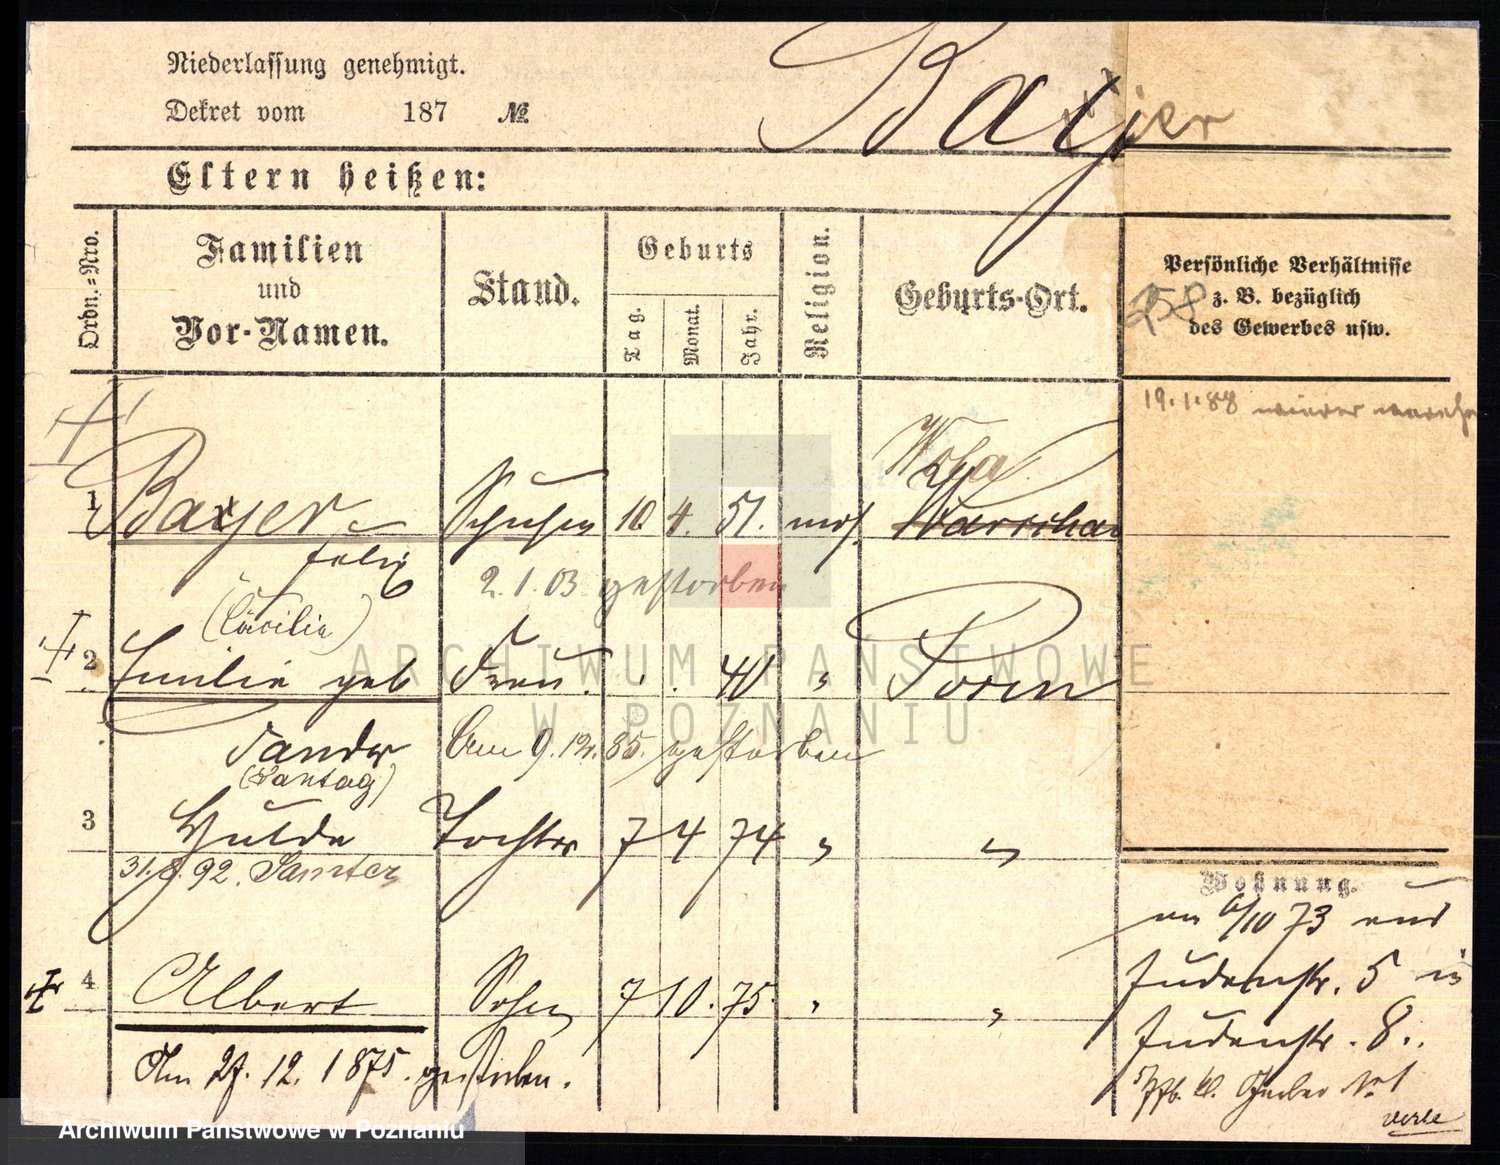 Niederlassung genehmigt.
Dekret vom 187 №
Bayer
Eltern heißen:
Ordn.=Nro.
Familien und Vor-Namen.
Stand.
Geburts
Tag.
Monat.
Jahr.
Religion.
Geburts-Ort.
Persönliche Verhältnisse z. B. bezüglich des Gewerbes usw.
19.1.88 wieder
1 Bayer 10 4. 51. mos. Warschau
Felix
2.1.03 gestorben
(Cäcilie)
2 Emilie geb Frau 40 " Posen
Sander Am 9.12.85. gestorben
(Santag)
3 Hulda Tochter 7 4 74 " "
31.8.92. Samter
Wohnung.
am 6/10 73 aus
Judenstr. 5 in
4 Albert Sohn 7 10. 75. " "
Judenstr. 8.
Am 27. 12. 1875. gestorben.
ARCHIWUM PAŃSTWOWE
W POZNANIU
Archiwum Państwowe w Poznaniu